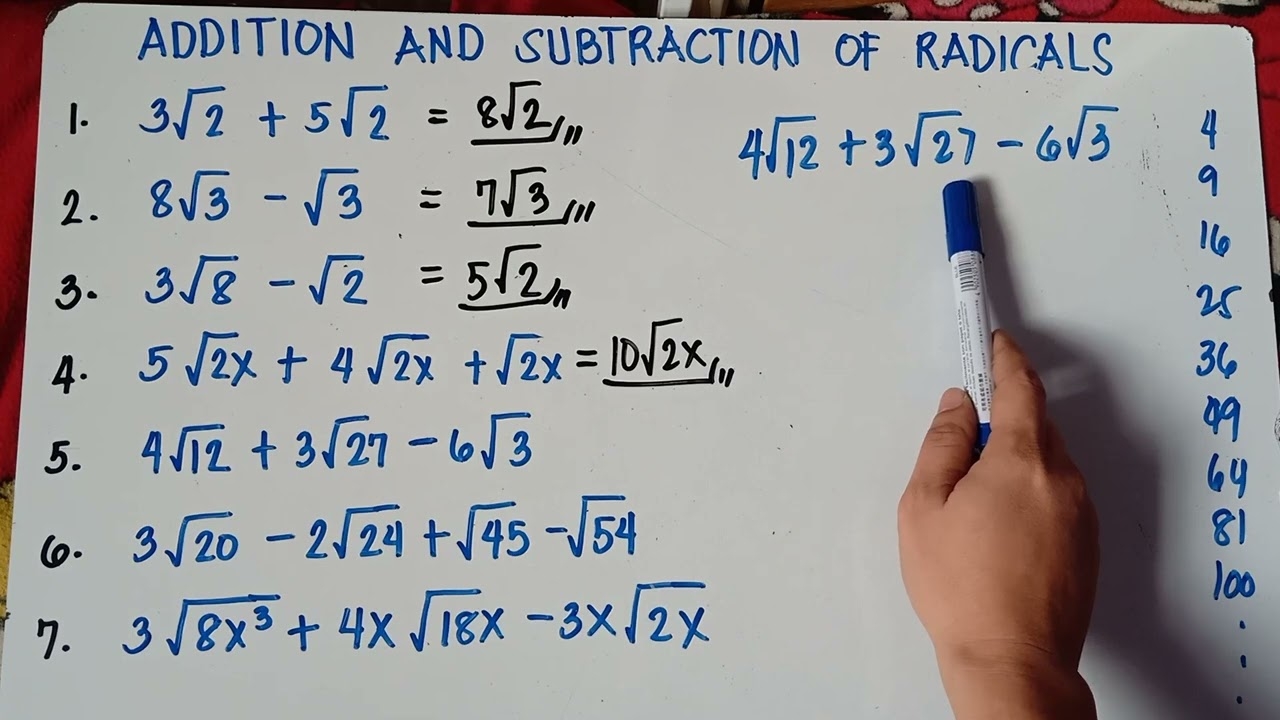 ADDITION AND SUBTRACTION OF RADICALS
1. 3√2 + 5√2 = 8√2
2. 8√3 - √3 = 7√3
3. 3√8 - √2 = 5√2
4. 5√2x + 4√2x + √2x = 10√2x
5. 4√12 + 3√27 - 6√3
6. 3√20 - 2√24 + √45 - √54
7. 3√8x³ + 4x√18x - 3x√2x
4√12 + 3√27 - 6√3
4
9
16
25
36
49
64
81
100
.
.
.